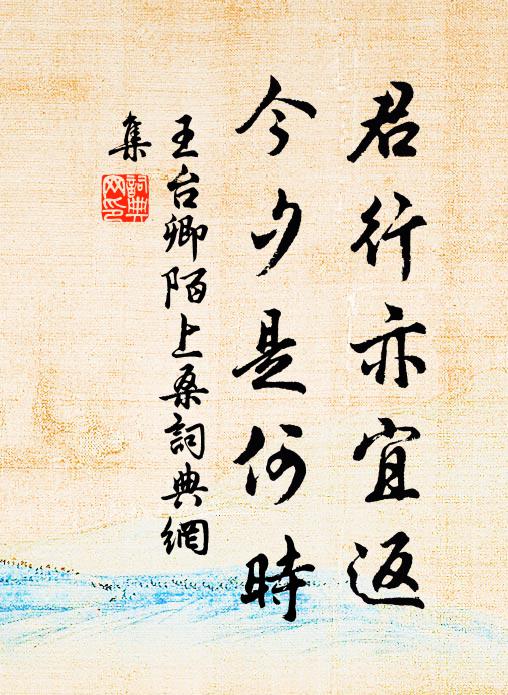 君行亦宜返
今夕是何時
王台卿陌上桑詞典網
集
詞典
网印